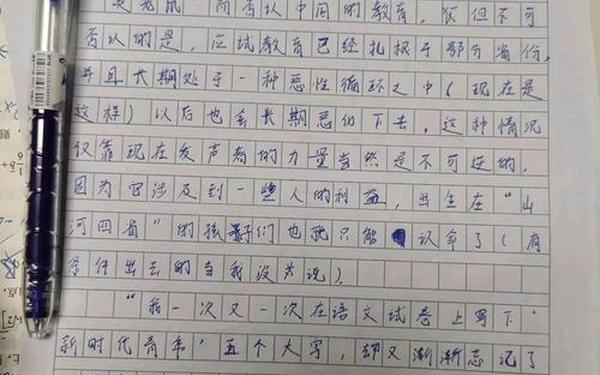 老鼠"而否认中间的教育,仅但不可
否认的是,应试教育已经扎根于部分省份,
并且长期处于一种恶性循环之中(现在是
这样)以后也会长期恶化下去,这种情况
仅靠现在发声者的力量当然是不可逆的,
因为它涉及到一些人的利益,出生在"山
河四省"的孩子们也就只能认命了(有
条件出去的当我没有说)。
"我一次又一次在语文试卷上写下'
新时代青年'五个大写,却又渐渐忘记了